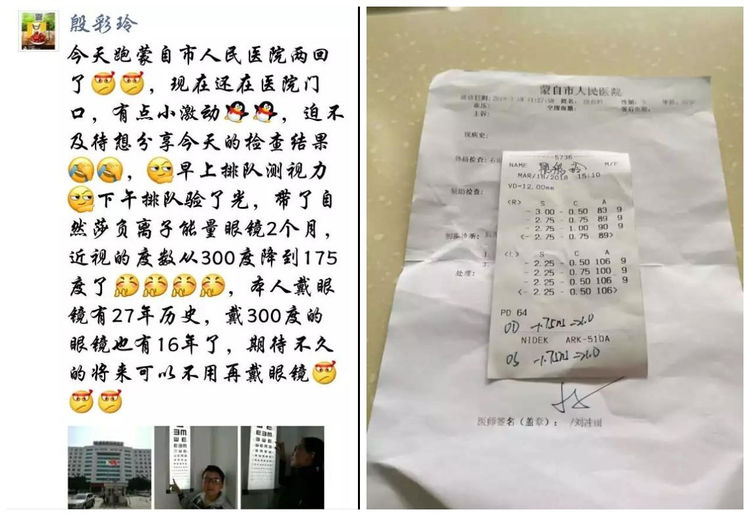 殷彩玲
今天跑蒙自市人民医院两回
了，现在还在医院门
口，有点小激动，迫不
及待想分享今天的检查结果
，早上排队测视力
下午排队验了光，带了自
然莎负离子能量眼镜2个月，
近视的度数从300度降到175
度了，本人戴眼
镜有27年历史，戴300度的
眼镜也有16年了，期待不久
的将来可以不用再戴眼镜
蒙自市人民医院
主诉：
现病史：
外科检查：
辅助检查：
处理：
5736
NAME M/F
MAR/18/2018 15:10
VD=12.00mm
<R> S C A
- 3.00 - 0.50 83 9
- 2.75 - 0.75 89 9
- 2.75 - 1.00 90 9
< - 2.75 - 0.75 89>
<L> S C A
- 2.25 - 0.50 106 9
- 2.25 - 0.75 100 9
- 2.25 - 0.50 106 9
< - 2.25 - 0.50 106>
PD 64
OD -1.75DS → 1.0
NIDEK ARK-510A
OS -1.75DS → 1.0
医师签名（盖章）：